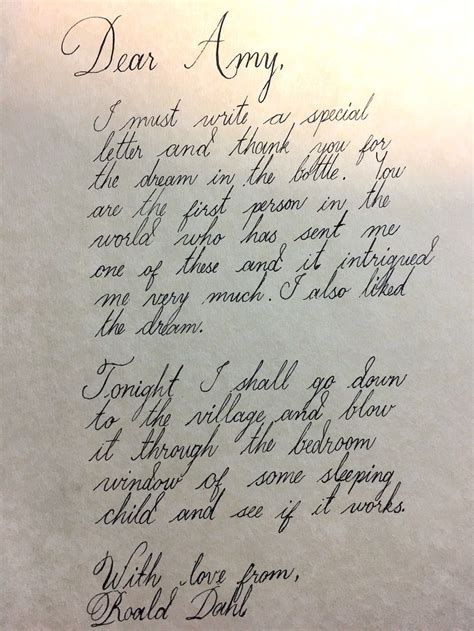 Dear Amy,
I must write a special
letter and thank you for
the dream in the bottle. You
are the first person in the
world who has sent me
one of these and it intrigued
me very much. I also liked
the dream.
Tonight I shall go down
to the village and blow
it through the bedroom
window of some sleeping
child and see if it works.
With love from,
Roald Dahl